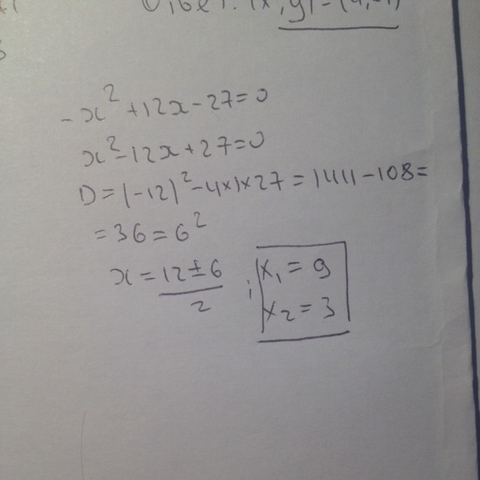 Ответ: (x; y) = (4; -1)
-x² + 12x - 27 = 0
x² - 12x + 27 = 0
D = (-12)² - 4×1×27 = 144 - 108 =
= 36 = 6²
x = 12 ± 6 / 2 ; x₁ = 9
x₂ = 3